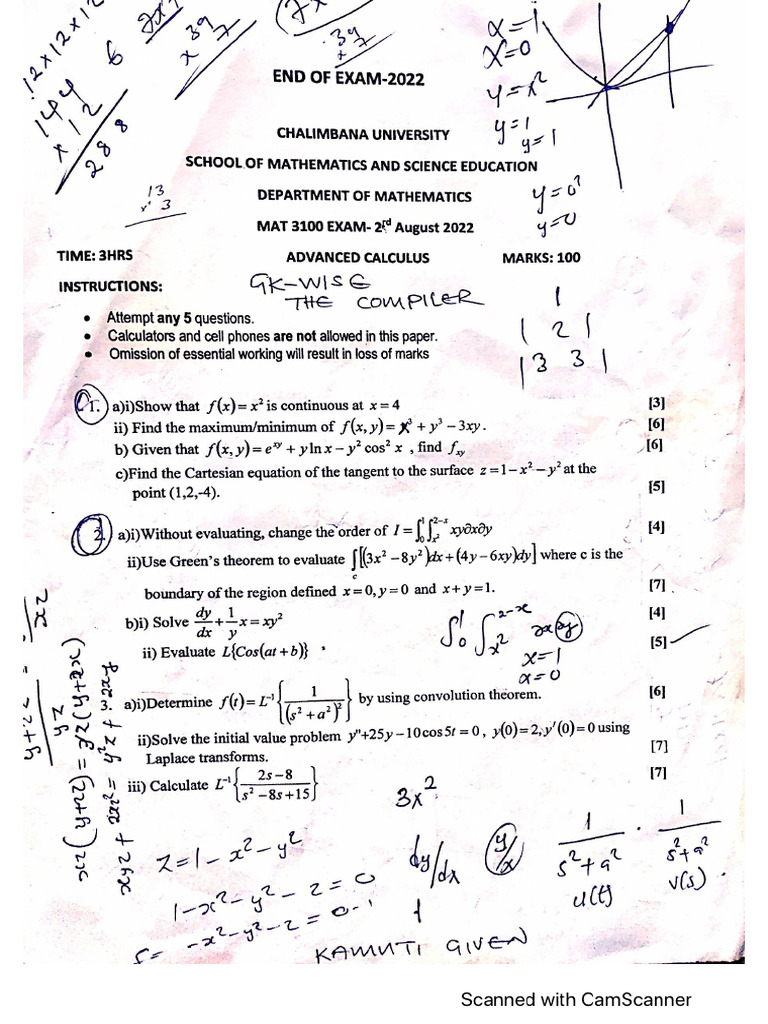 12×12×12
144
×12
288
6
39
× 7
39
× 7
x=-1
x=0
y=x²
y=1
y=1
END OF EXAM-2022
CHALIMBANA UNIVERSITY
SCHOOL OF MATHEMATICS AND SCIENCE EDUCATION
13
× 3
DEPARTMENT OF MATHEMATICS
y=0²
y=0
MAT 3100 EXAM- 2rd August 2022
TIME: 3HRS ADVANCED CALCULUS MARKS: 100
INSTRUCTIONS: GK-WISE
THE COMPILER
1
1 2 1
1 3 3 1
• Attempt any 5 questions.
• Calculators and cell phones are not allowed in this paper.
• Omission of essential working will result in loss of marks
1. a)i)Show that f(x)=x² is continuous at x=4 [3]
ii) Find the maximum/minimum of f(x,y)=x³+y³−3xy. [6]
b) Given that f(x,y)=e^{xy}+y ln x−y² cos² x, find f_{xy} [6]
c)Find the Cartesian equation of the tangent to the surface z=1−x²−y² at the
point (1,2,-4). [5]
2. a)i)Without evaluating, change the order of I=∫₀¹∫_{x²}^{2−x} xy∂x∂y [4]
ii)Use Green's theorem to evaluate ∫_c[(3x²−8y²)dx+(4y−6xy)dy] where c is the
boundary of the region defined x=0, y=0 and x+y=1. [7]
b)i) Solve dy/dx+(1/y)x=xy² [4]
ii) Evaluate L{Cos(at+b)} [5]
∫₀¹ ∫_{x²}^{2-x} xy
x=1
x=0
3. a)i)Determine f(t)=L⁻¹{1/(s²+a²)²} by using convolution theorem. [6]
ii)Solve the initial value problem y"+25y−10cos5t=0, y(0)=2, y'(0)=0 using
Laplace transforms. [7]
iii) Calculate L⁻¹{(2s−8)/(s²−8s+15)} [7]
3x²
z=1-x²-y²
1-x²-y²-z=0
-x²-y²-z=0-1
dy/dx
y/x
1
1/(s²+a²) · 1/(s²+a²)
u(t) v(s)
KAMUTI GIVEN
Scanned with CamScanner